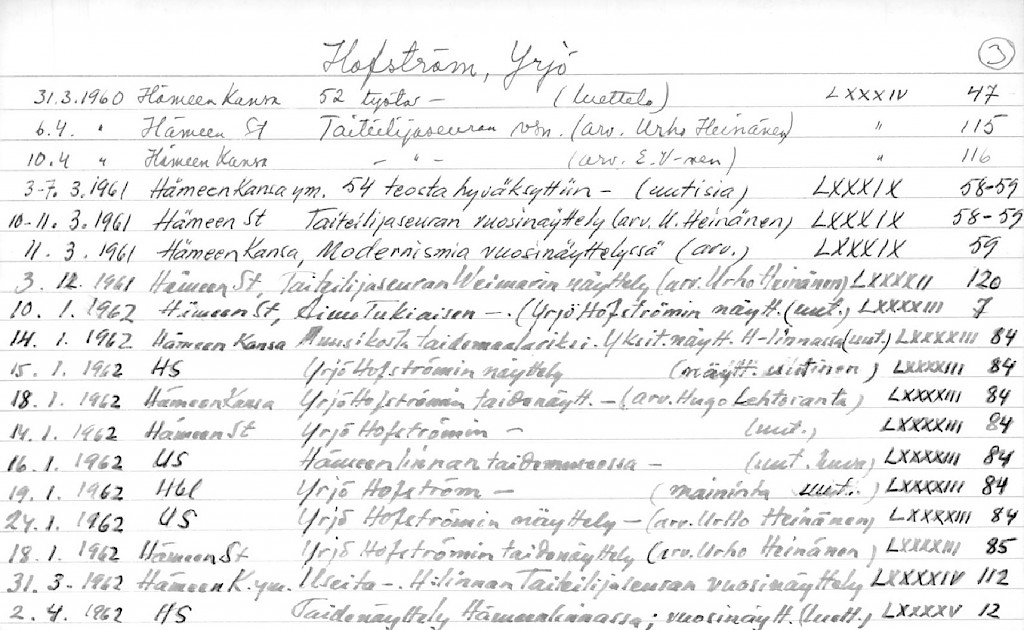 Hofström, Yrjö 3
31.3.1960 Hämeen Kansa 52 työtä — (luettelo) LXXXIV 47
6.4. " Hämeen St Taiteilijaseuran vsn. (arv. Urho Heinänen) " 115
10.4 " Hämeen Kansa — " — (arv. E.V-nen) " 116
3-7. 3.1961 Hämeen Kansa ym. 54 teosta hyväksyttiin — (uutisia) LXXXIX 58-59
10-11. 3.1961 Hämeen St Taiteilijaseuran vuosinäyttely (arv. U. Heinänen) LXXXIX 58-59
11. 3. 1961 Hämeen Kansa, Modernismia vuosinäyttelyssä (arv.) LXXXIX 59
3. 12. 1961 Hämeen St, Taiteilijaseuran Weimarin näyttely (arv. Urho Heinänen) LXXXXII 120
10. 1. 1962 Hämeen St, Aimo Tukiaisen —. (Yrjö Hofströmin näytt. (uut.) LXXXXIII 7
14. 1. 1962 Hämeen Kansa Muusikosta taidemaalariksi. Yksit. näytt. H-linnassa (uut.) LXXXXIII 84
15. 1. 1962 HS Yrjö Hofströmin näyttely (näytt. uutinen) LXXXXIII 84
18. 1. 1962 Hämeen Kansa Yrjö Hofströmin taidenäytt. — (arv. Hugo Lehtoranta) LXXXXIII 84
14. 1. 1962 Hämeen St Yrjö Hofströmin — (uut.) LXXXXIII 84
16. 1. 1962 US Hämeenlinnan taidemuseossa — (uut. kuva) LXXXXIII 84
19. 1. 1962 Hbl Yrjö Hofström — (maininta uut.) LXXXXIII 84
24. 1. 1962 US Yrjö Hofströmin näyttely — (arv. Urho Heinänen) LXXXXIII 84
18. 1. 1962 Hämeen St Yrjö Hofströmin taidenäyttely (arv. Urho Heinänen) LXXXXIII 85
31. 3. 1962 Hämeen K. ym. Useita —. H:linnan Taiteilijaseuran vuosinäyttely LXXXXIV 112
2. 4. 1962 HS Taidenäyttely Hämeenlinnassa; vuosinäytt. (luett.) LXXXXV 12